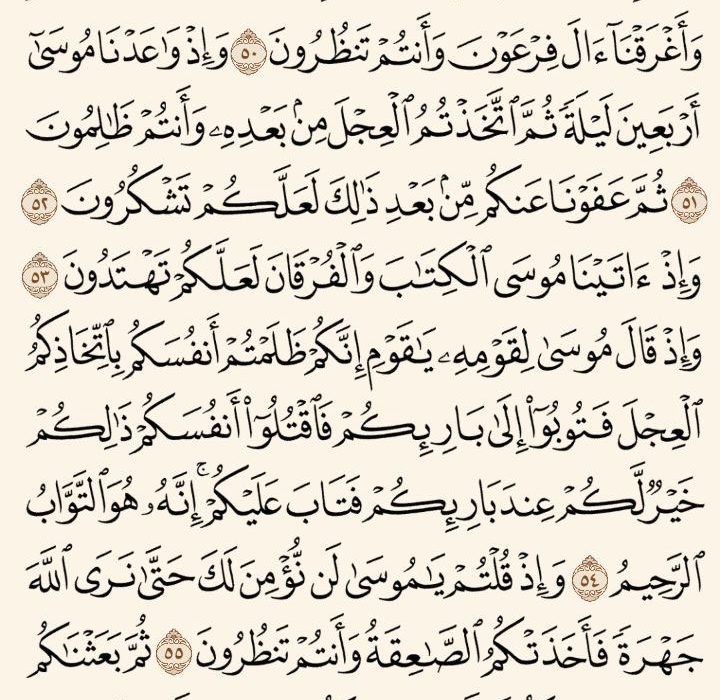 وَأَغْرَقْنَآ ءَالَ فِرْعَوْنَ وَأَنتُمْ تَنظُرُونَ ٥٠ وَإِذْ وَٰعَدْنَا مُوسَىٰٓ
أَرْبَعِينَ لَيْلَةً ثُمَّ ٱتَّخَذْتُمُ ٱلْعِجْلَ مِنۢ بَعْدِهِۦ وَأَنتُمْ ظَٰلِمُونَ
٥١ ثُمَّ عَفَوْنَا عَنكُم مِّنۢ بَعْدِ ذَٰلِكَ لَعَلَّكُمْ تَشْكُرُونَ ٥٢
وَإِذْ ءَاتَيْنَا مُوسَى ٱلْكِتَٰبَ وَٱلْفُرْقَانَ لَعَلَّكُمْ تَهْتَدُونَ ٥٣
وَإِذْ قَالَ مُوسَىٰ لِقَوْمِهِۦ يَٰقَوْمِ إِنَّكُمْ ظَلَمْتُمْ أَنفُسَكُم بِٱتِّخَاذِكُمُ
ٱلْعِجْلَ فَتُوبُوٓا۟ إِلَىٰ بَارِئِكُمْ فَٱقْتُلُوٓا۟ أَنفُسَكُمْ ذَٰلِكُمْ
خَيْرٌ لَّكُمْ عِندَ بَارِئِكُمْ فَتَابَ عَلَيْكُمْ ۚ إِنَّهُۥ هُوَ ٱلتَّوَّابُ
ٱلرَّحِيمُ ٥٤ وَإِذْ قُلْتُمْ يَٰمُوسَىٰ لَن نُّؤْمِنَ لَكَ حَتَّىٰ نَرَى ٱللَّهَ
جَهْرَةً فَأَخَذَتْكُمُ ٱلصَّٰعِقَةُ وَأَنتُمْ تَنظُرُونَ ٥٥ ثُمَّ بَعَثْنَٰكُم